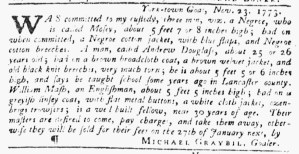 York-town Goal, Nov. 23. 1773.
WAS committed to my custody, three men, viz. a Negroe, who
is called Moses, about 5 feet 7 or 8 inches high; had on
when committed, a Negroe cotton jacket, with blue flaps, and Negroe
cotton breeches. A man, called Andrew Douglass, about 25 or 26
years old; had on a brown broadcloth coat, a brown velvet jacket, and
old black knit breeches, very much torn; he is about 5 feet 5 or 6 inches
high, and says he taught school some years ago in Lancaster county.
William Mash, an Englishman, about 5 feet 5 inches high; had on a
greyish surtout coat, with flat metal buttons, a white cloth jacket, ozen-
brigs trowsers; is a well built fellow, near 30 years of age. Their
masters are desired to come, pay charges, and take them away, other-
wise they will be sold for their fees on the 27th of January next, by
¶ MICHAEL GRAYBILL, Goaler.